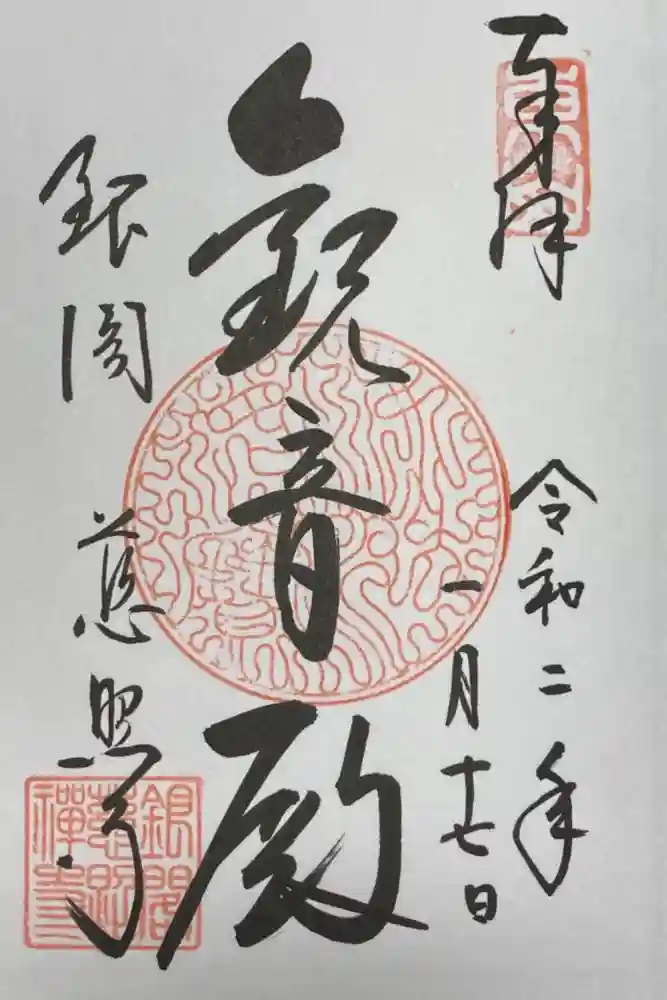 奉拝
令和二年
一月十七日
観音殿
銀閣 慈照寺
銀閣
慈照
禅寺